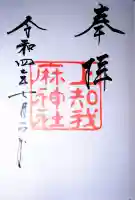 奉拝
上知我
麻神社
令和四年七月